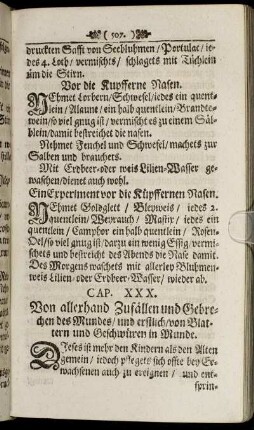 ( 507. )
druckten Safft von Seebluhmen / Portulac / ie-
des 4. Loth / vermischts / schlagets mit Tüchlein
üm die Stirn.
Vor die Kupfferne Nasen.
NEhmet Lorbern / Schwefel / iedes ein quent-
lein / Alaune / ein halb quentlein / Brandte-
wein / so viel gnug ist / vermischt es zu einem Säl-
blein / damit bestreichet die nasen.
Nehmet Fenchel und Schwefel / machets zur
Salben und brauchets.
Mit Erdbeer- oder weis Lilien-Wasser ge-
waschen / dienet auch wohl.
Ein Experiment vor die Küpffernen Nasen.
NEhmet Goldglett / Bleyweis / iedes 2.
quentlein / Weyrauch / Mastix / iedes ein
quentlein / Camphor ein halb quentlein / Rosen-
Oel / so viel gnug ist / darzu ein wenig Essig / vermi-
schets und bestreicht des Abends die Nase damit.
Des Morgens waschets mit allerley Bluhmen-
weis Lilien- oder Erdbeer-Wasser / wieder ab.
CAP. XXX.
Von allerhand Zufällen und Gebre-
chen des Mundes / und erstlich / von Blat-
tern und Geschwüren in Munde.
DIeses ist mehr den Kindern als den Alten
gemein / iedoch pfleget sichs offte bey Er-
wachsenen auch zu ereignen / und ent-
sprin-